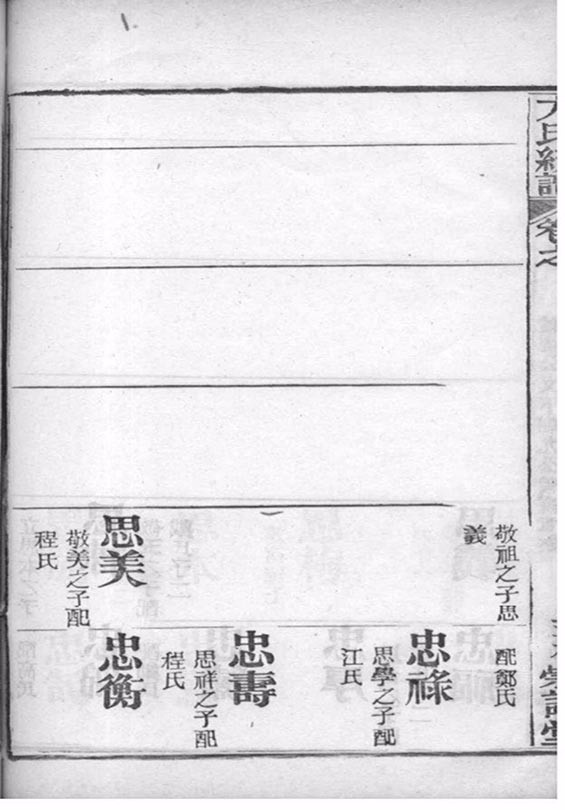 氏統譜
卷之
敬祖之子思
義
思美
敬美之子配
程氏
配鄭氏
忠祿
思學之子配
江氏
忠壽
思祥之子配
程氏
忠衡